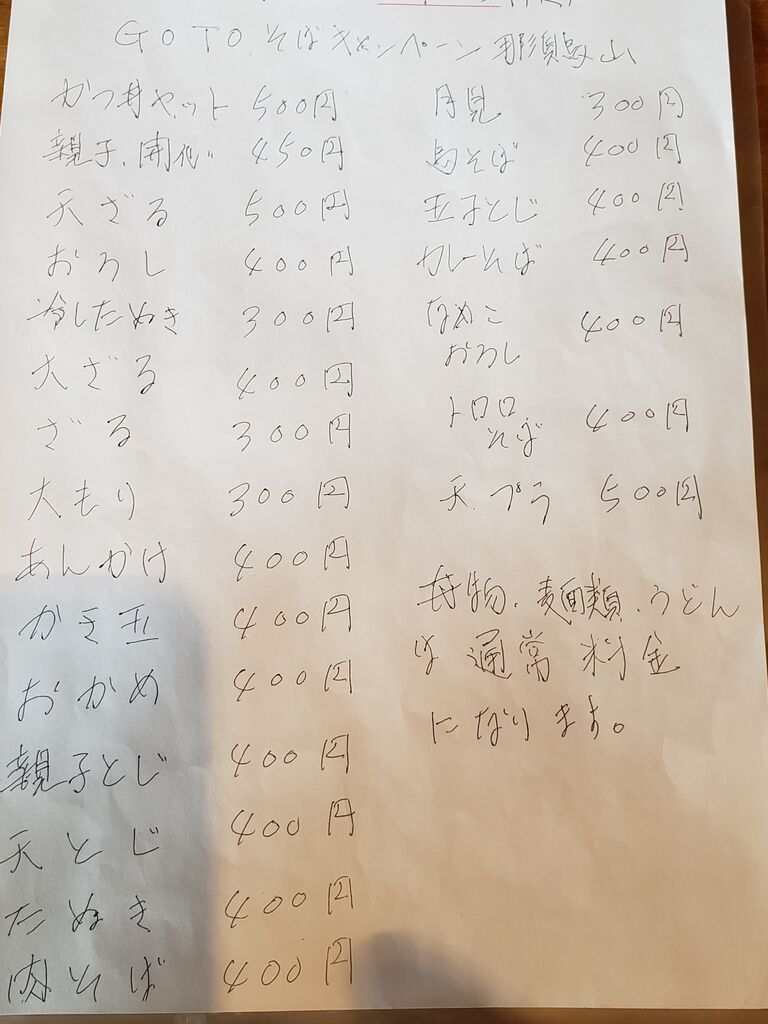 GOTO.そばキャンペーン 那須烏山
かつ丼セット 500円
親子、開化 450円
天ざる 500円
おろし 400円
冷したぬき 300円
大ざる 400円
ざる 300円
大もり 300円
あんかけ 400円
かき玉 400円
おかめ 400円
親子とじ 400円
天とじ 400円
たぬき 400円
肉そば 400円
月見 300円
そば 400円
玉子とじ 400円
カレーそば 400円
なめこ 400円
おろし
トロロ 400円
そば
天プラ 500円
丼物、麺類、うどん
は通常料金
になります。